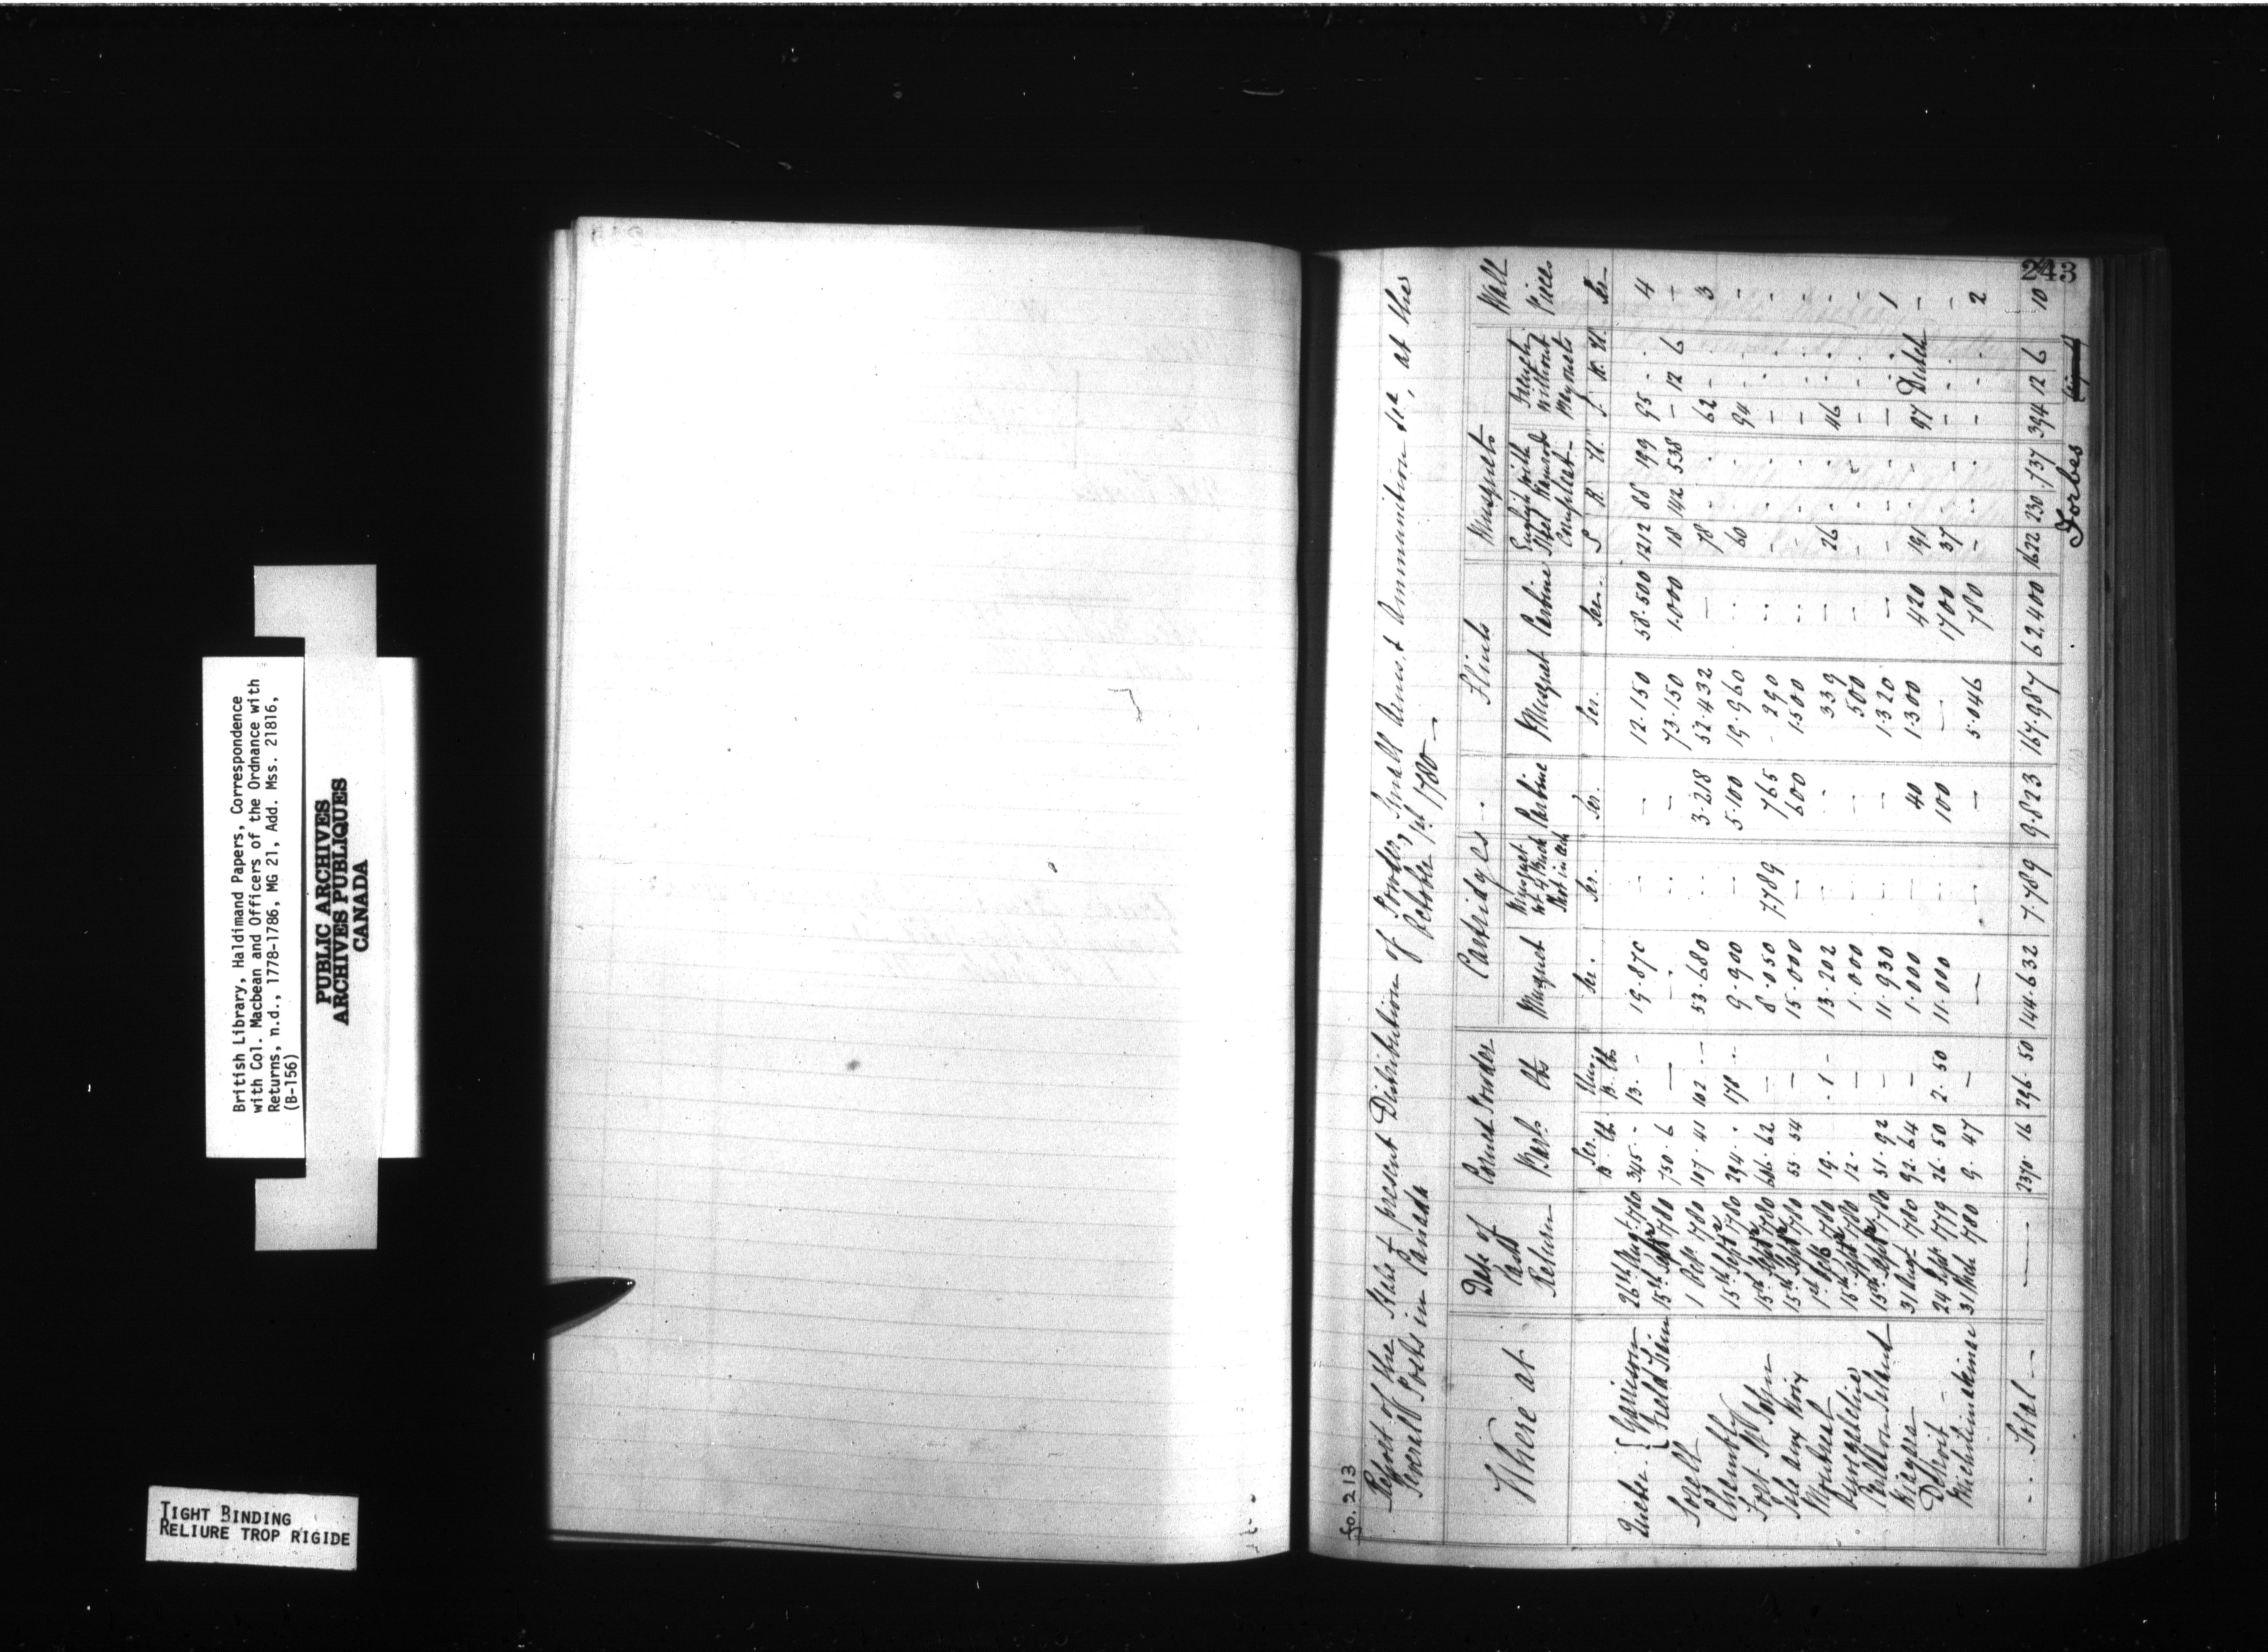 British Library, Haldimand Papers, Correspondence
with Col. Macbean and Officers of the Ordnance with
Returns, n.d., 1778-1786, MG 21, Add. Mss. 21816,
(B-156)
PUBLIC ARCHIVES
ARCHIVES PUBLIQUES
CANADA
TIGHT BINDING
RELIURE TROP RIGIDE
243
fo. 213
Report of the State & present Distribution of Powder, Small Arms, & Ammunition &ca, at the
Severall Posts in Canada October 1st 1780 —
Where at Date of Last Return Corned Powder Cartridges Flints Musquets Wall Pieces
Barls lbs Musquet Carbine Musquet Carbine English with Steel Ramrods Compleat French without Bayonets
Ser. B. lbs Unser B. lbs Ser. Ser. Ser. Ser. Ser. S R. U. S. R. U. Ser
Quebec { Garrison 26th Augt 780 345 - 13 - 19.870 — — 12.150 58.500 1212 88 199 95 . . 4
{ Field Train 15th Sepr 780 730. 6 — — — — 73.150 1.000 18 142 538 — 12 6 —
Sorell 1 Octr 780 107. 41 102 — 53.680 — 3.218 52.432 — 78 . . 62 — . 3
Chambly 15th Septr 780 294 . 178 .. 9.900 — 5.100 19.960 .. 60 . . 94 . . -
Fort St John 15th Septr 780 606. 62 — 8.050 7789 765 290 .. - . . - . . -
Isle aux Noix 15th Septr 780 53. 54 — 15.000 — 600 1.500 — - . . - . . -
Montreal 1st Octr 780 19. . 1 - 13.202 - - 339 — 26 . . 46 . . -
15th Septr 780 12. — 1.000 — — 500 — - . . - . . -
Carleton Island 15th Septr 780 31. 92 — 11.930 — — 1.320 — - . . - . . 1
Niagara 31 Augt 780 92. 64 — 1.000 — 40 1.300 420 191 . . 97 Dutch —
Detroit - 24 Sepr 779 26. 50 2. 50 11.000 — 100 — 1700 37 . . - - . —
Michilimakinac 31 Mch 780 9. 47 — — — — 5.046 780 - . . - - . 2
Total — — 2370. 16 296. 50 144.632 7.789 9.823 167.987 62.400 1622 230 737 394 12 6 10
Forbes